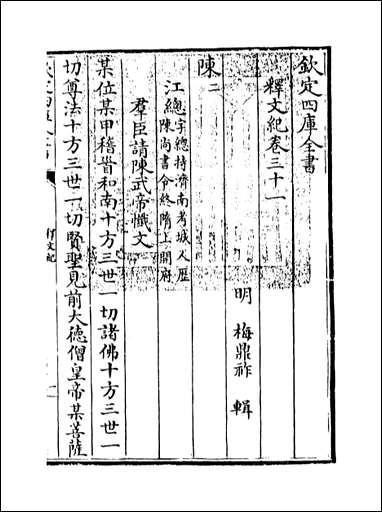 欽定四庫全書
釋文紀卷三十一
明 梅鼎祚 輯
陳二
江總字總持濟南考城人歷
陳尚書令終隋上開府
羣臣請陳武帝懺文
某位某甲稽首和南十方三世一切諸佛十方三世一
切尊法十方三世一切賢聖見前大德僧皇帝某菩薩